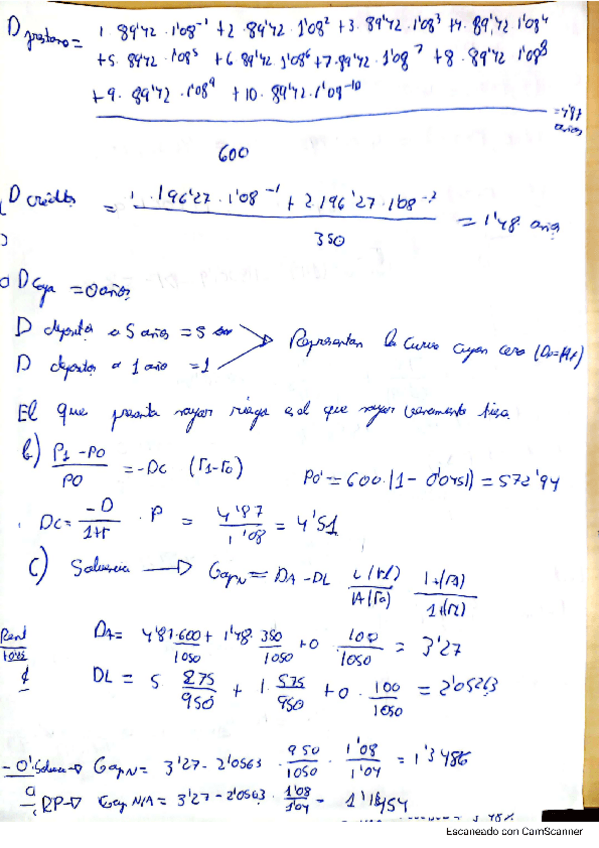 D prestamo = 1. 89'42 · 1'08⁻¹ + 2 · 89'42 · 1'08² + 3 · 89'42 · 1'08³ + 4 · 89'42 1'08⁴
+5 · 89'42 · 1'08⁵ + 6 89'42 1'08⁶ + 7 · 89'42 · 1'08⁷ + 8 · 89'42 1'08⁸
+ 9 · 89'42 · 1'08⁹ + 10 · 89'42 · 1'08⁻¹⁰
= 4'87 años
600
D Crédito = 1 · 196'27 · 1'08⁻¹ + 2 · 196'27 · 1'08⁻² = 1'48 años
350
D Caja = 0 años
D deposito a 5 años = 5
D deposito a 1 año = 1
Representan la curva cupon cero
El que presenta mayor riesgo es el que mayor
b) P1 - P0 / P0 = - DC (r1 - r0)
P0' = 600 · (1 - 0'0451) = 572'94
DC = -D / 1+r · P = 4'87 / 1'08 = 4'51
c) Solvencia → GapN = DA - DL L(r1) / A(r0) 1+(rA) / 1+(rL)
Rent
DA = 4'87·600 / 1050 + 1'48 350 / 1050 + 0 100 / 1050 = 3'27
DL = 5 · 275 / 950 + 1 · 575 / 950 + 0 · 100 / 1050 = 2'05263
- 0' Solvencia → GapN = 3'27 - 2'0563 · 950 / 1050 · 1'08 / 1'04 = 1'3486
RP → Gap N/A = 3'27 - 2'0563 · 1'08 / 1'04 = 1'18454
Escaneado con CamScanner